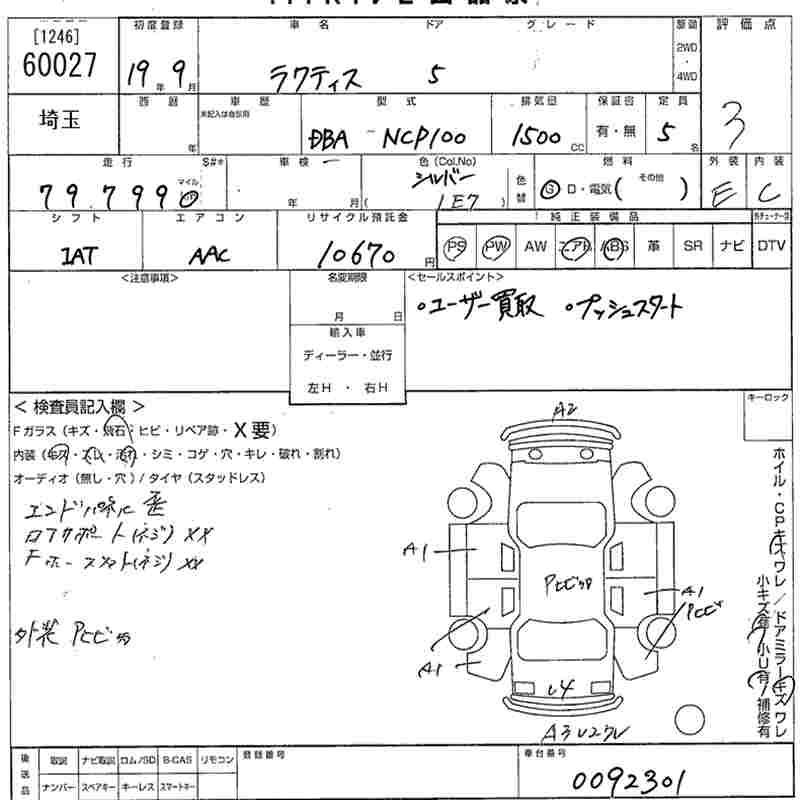 [1246]
60027
初度登録
19年 9月
車名 ドア グレード
ラクティス 5
駆動
2WD
・
4WD
評価点
3
埼玉
西暦
年
車歴
未記入は自家用
型式
DBA-NCP100
排気量
1500 CC
保証書
有・無
定員
5名
走行 S#*
79,799
マイル
km
車検
年 月(
色(Col.No)
シルバー
1E7 )
色替
燃料
G D・電気( その他 )
外装
E
内装
C
シフト
IAT
エアコン
AAC
リサイクル預託金
10670円
純正装備品
PS PW AW エアB ABS 革 SR ナビ
DTV
<注意事項>
名変期限
月 日
輸入車
ディーラー・並行
左H ・ 右H
<セールスポイント>
・ユーザー買取 ・プッシュスタート
キーロック
< 検査員記入欄 >
Fガラス(キズ・飛石・ヒビ・リペア跡・X要)
内装(キズ・スレ・汚れ・シミ・コゲ・穴・キレ・破れ・割れ)
オーディオ(無し・穴)/タイヤ(スタッドレス)
エンドパネル 歪
ロアサポート(ネジ)XX
Fホースメント(ネジ)XX
外装 Pヒビ
A2
A1
Pヒビ
A1
Pヒビ
A1
U4
ホイル・CPキズワレ/ドアミラーキズワレ
小キズ有/小U有/補修有
後送品
取説 ナビ取説 ロム/SD B-CAS リモコン
ナンバー スペアキー キーレス スマートキー
登録番号
車台番号
0092301